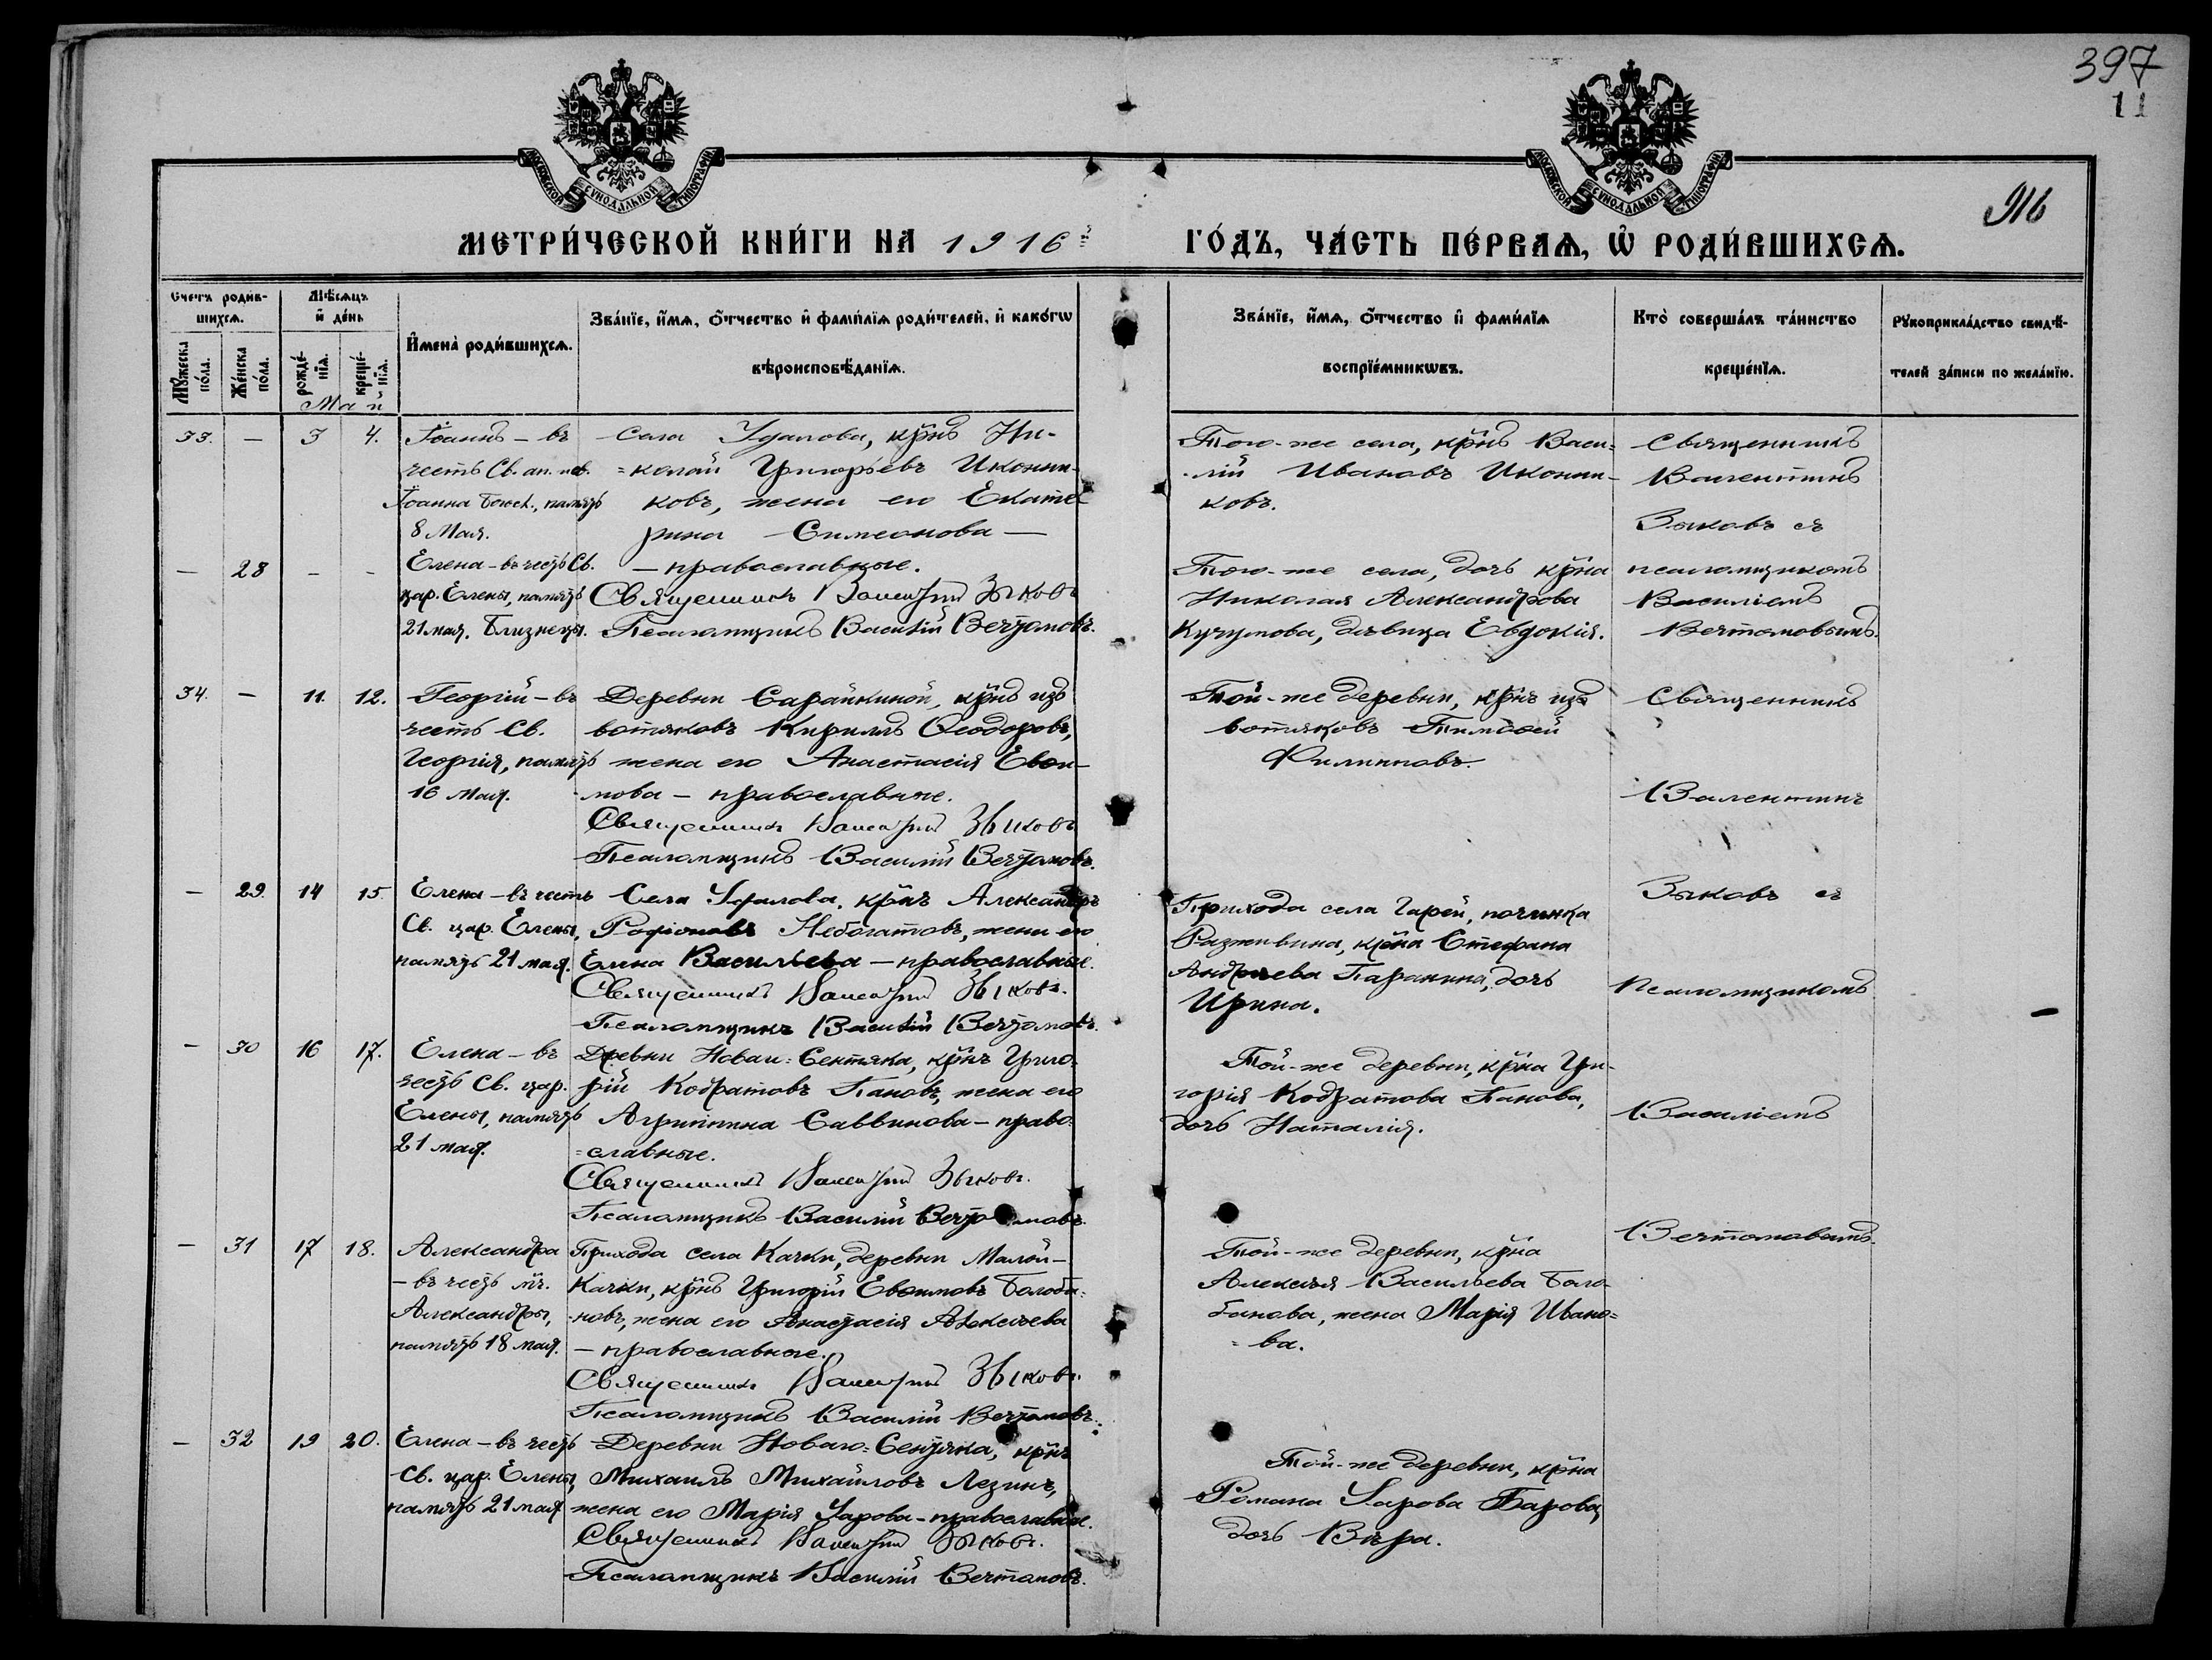 397
11
916
МОСКОВСКОЙ СѴНОДАЛЬНОЙ ТИПОГРАФІИ
МОСКОВСКОЙ СѴНОДАЛЬНОЙ ТИПОГРАФІИ
МЕТРИ́ЧЕСКОЙ КНИ́ГИ НА 1916й
ГО́ДЪ, ЧА́СТЬ ПЕ́РВАѦ, Ѡ҆ РОДИ́ВШИХСѦ.
Счетъ родив-
шихсѧ.
Мѣ́сѧцъ
и҆ де́нь
Мꙋ́жеска по́ла.
Же́нска по́ла.
рожде́-нїѧ.
креще́-нїѧ.
И҆мена̀ роди́вшихсѧ.
Зва́нїе, и҆́мѧ, ѻ҆́тчество и҆ фамѝлїѧ роди́телей, и҆ како́гѡ
вѣроисповѣ́данїѧ.
Зва́нїе, и҆́мѧ, ѻ҆́тчество и҆ фамѝлїѧ
воспрїе́мникѡвъ.
Кто̀ соверша́лъ та́инство
креще́нїѧ.
Рꙋкоприкла́дство свидѣ́-
телей за́писи по жела́нїю.
Май
33. — 3 4.
Іоаннъ – въ
честь Св. ап. и ев.
Іоанна Богосл., память
8 Мая.
Села Удалова, крнъ Ни-
=колай Григорьевъ Иконни-
ковъ, жена его Екате-
рина Симеонова —
— православные.
Священникъ Валентинъ Зыковъ
Псаломщикъ Василій Вечтомовъ.
Того-же села, крнъ Васи=
лій Ивановъ Иконни-
ковъ.
Священникъ
Валентинъ
Зыковъ съ
— 28 - -
Елена – въ честь Св.
цар. Елены, память
21 мая. Близнецы.
Того-же села, дочь крна
Николая Александрова
Кучумова, дѣвица Евдокія.
псаломщикомъ
Василіемъ
Вечтомовымъ.
34. — 11. 12.
Георгій – въ
честь Св.
Георгія, память
16 мая.
Деревни Сарайкиной, крнъ изъ
вотяковъ Кириллъ Ѳеодоровъ,
жена его Анастасія Евѳи-
мова – православные.
Священникъ Валентинъ Зыковъ
Псаломщикъ Василій Вечтомовъ.
Той-же деревни, крнъ изъ
вотяковъ Тимоѳей
Филипповъ.
Священникъ
Валентинъ
— 29. 14 15.
Елена – въ честь
Св. цар. Елены,
память 21 мая.
Села Удалова, крнъ Александръ
Родіоновъ Небогатовъ, жена его
Елена Васильева – православные.
Священникъ Валентинъ Зыковъ.
Псаломщикъ Василій Вечтомовъ.
Прихода села Гарей, починка
крна Стефана
Андреева Паранина, дочь
Ирина.
Зыковъ съ
псаломщикомъ
— 30 16 17.
Елена – въ
честь Св. цар.
Елены, память
21 мая.
Древни Новаго=Сентяка, крнъ Григо-
рій Кодратовъ Пановъ, жена его
Агриппина Саввинова – право-
=славные.
Священникъ Валентинъ Зыковъ.
Псаломщикъ Василій Вечтомовъ.
Той-же деревни, крна Гри-
горія Кодратова Панова,
дочь Наталія.
Василіемъ
— 31 17 18.
Александра
– въ честь мч.
Александры,
память 18 мая.
Прихода села Качки, деревни Малой-
Качки, крнъ Григорій Евѳимовъ Балоба=
новъ, жена его Анастасія Алексѣева
– православные.
Священникъ Валентинъ Зыковъ.
Псаломщикъ Василій Вечтомовъ.
Той-же деревни, крна
Алексѣя Васильева Бало-
банова, жена Марія Ивано=
=ва.
Вечтомовымъ.
— 32 19 20.
Елена – въ честь
Св. цар. Елены,
память 21 мая
Деревни Новаго=Сентяка, крнъ
Михаилъ Михайловъ Лезинъ,
жена его Марія Уарова – православные.
Священникъ Валентинъ Зыковъ.
Псаломщикъ Василій Вечтомовъ.
Той-же деревни, крна
Романа Уарова Барова,
дочь Вѣра.